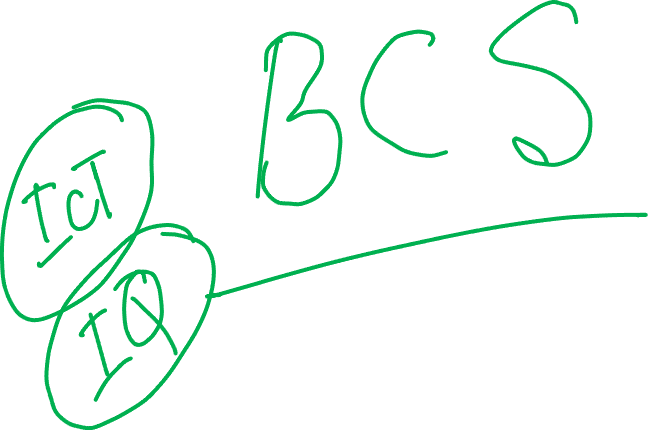 BCS
IcT
IQ